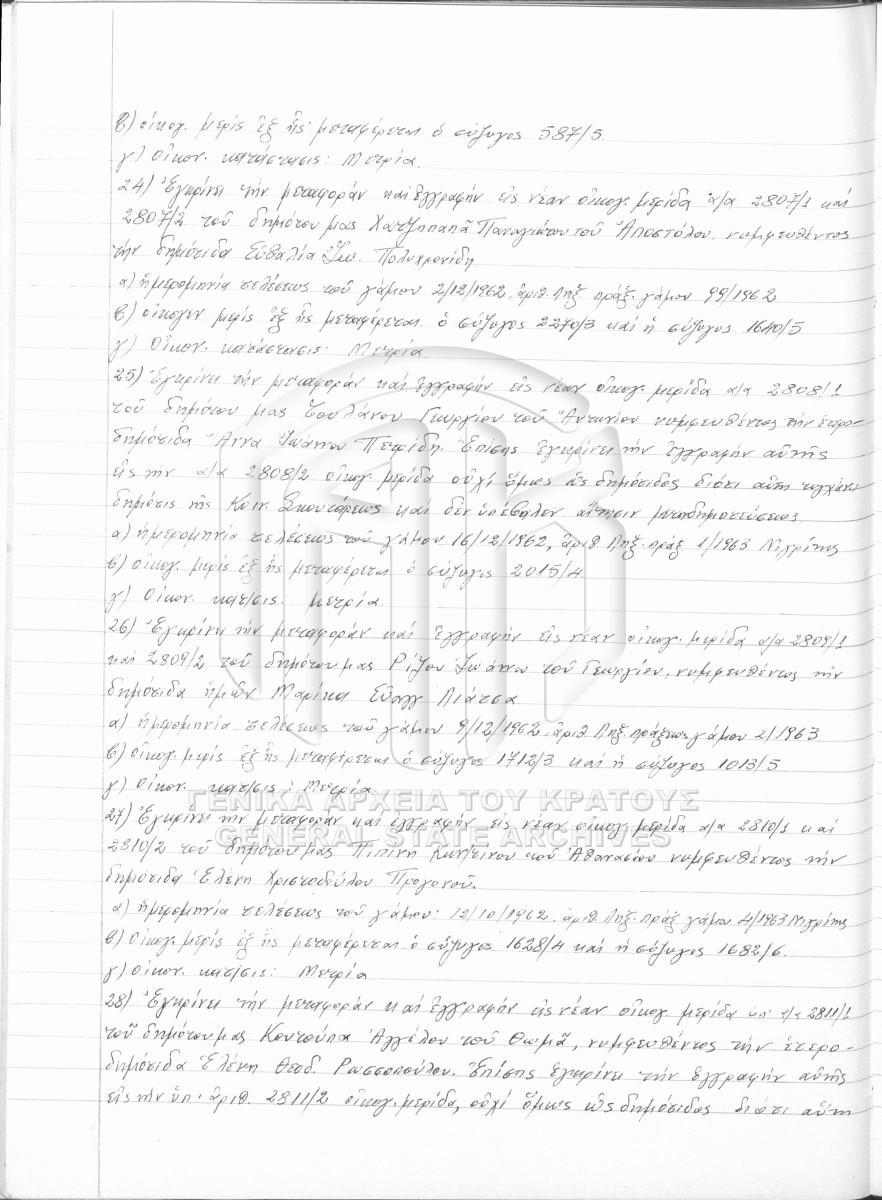 β) οἰκογ. μερίς ἐξ ἧς μεταφέρεται ὁ σύζυγος 587/5.
γ) Οἰκον. κατάστασις: Μετρία.
24) Ἐγκρίνει τήν μεταφοράν καί ἐγγραφήν εἰς νέαν οἰκογ. μερίδα α/α 2807/1 καί
2807/2 τοῦ δημότου μας Χατζηπαπᾶ Παναγιώτου τοῦ Ἀποστόλου, νυμφευθέντος
τήν δημότιδα Εὐθαλία Ἰω. Πολυχρονίδη
α) ἡμερομηνία τελέσεως τοῦ γάμου 2/12/1962, ἀριθ. Ληξ. πράξ. γάμου 99/1962
β) οἰκογεν μερίς ἐξ ἧς μεταφέρεται ὁ σύζυγος 2270/3 καί ἡ σύζυγος 1640/5
γ) Οἰκον. κατάστασις: Μετρία.
25) Ἐγκρίνει τήν μεταφοράν καί ἐγγραφήν εἰς νέαν οἰκογ. μερίδα α/α 2808/1
τοῦ δημότου μας Γεωργίου τοῦ Ἀντωνίου νυμφευθέντος τήν ἑτερο-
δημότιδα Ἄννα Ἰωάννου Πετρίδη. Ἐπίσης ἐγκρίνει τήν ἐγγραφήν αὐτῆς
εἰς τήν α/α 2808/2 οἰκογ. μερίδα οὐχί ὅμως ὡς δημότιδος διότι αὕτη τυγχάνει
δημότις τῆς Κοιν. Σκουτάρεως καί δέν ὑπέβαλεν αἴτησιν μεταδημοτεύσεως.
α) ἡμερομηνία τελέσεως τοῦ γάμου 16/12/1962, ἀριθ. Ληξ. πράξ 1/1963 Νιγρίτης
β) οἰκογ. μερίς ἐξ ἧς μεταφέρεται ὁ σύζυγος 2015/4.
γ) Οἰκον. κατ/σις: μετρία.
26) Ἐγκρίνει τήν μεταφοράν καί ἐγγραφήν εἰς νέαν οἰκογ. μερίδα α/α 2809/1
καί 2809/2 τοῦ δημότου μας Ρίζου Ἰωάννου τοῦ Γεωργίου, νυμφευθέντος τήν
δημότιδα ἡμῶν Μαρίκα Εὐαγγ Λιάτσα.
α) ἡμερομηνία τελέσεως τοῦ γάμου 9/12/1962. ἀριθ. Ληξ. πράξεως γάμου 2/1963
β) οἰκογ. μερίς ἐξ ἧς μεταφέρεται ὁ σύζυγος 1712/3 καί ἡ σύζυγος 1013/5
γ) Οἰκον. κατ/σις: Μετρία
ΓΕΝΙΚΑ ΑΡΧΕΙΑ ΤΟΥ ΚΡΑΤΟΥΣ
27) Ἐγκρίνει τήν μεταφοράν καί ἐγγραφήν εἰς νέαν οἰκογ. μερίδα α/α 2810/1 καί
GENERAL STATE ARCHIVES
2810/2 τοῦ δημότου μας Πιπίνη Κων/τίνου τοῦ Ἀθανασίου νυμφευθέντος τήν
δημότιδα Ἑλένη Χριστοδούλου Προγονοῦ.
α) ἡμερομηνία τελέσεως τοῦ γάμου: 12/10/1962. ἀριθ. Ληξ. πράξ γάμου 4/1963 Νιγρίτης
β) Οἰκογ. μερίς ἐξ ἧς μεταφέρεται ὁ σύζυγος 1628/4 καί ἡ σύζυγος 1682/6.
γ) οἰκον. κατ/σις: Μετρία
28) Ἐγκρίνει τήν μεταφοράν καί ἐγγραφήν εἰς νέαν οἰκογ μερίδα ὑπ' α/α 2811/1
τοῦ δημότου μας Κουτούπα Ἀγγέλου τοῦ Θωμᾶ, νυμφευθέντος τήν ἑτερο-
δημότιδα Ἑλένη Θεοδ. Ρωσσοπούλου. Ἐπίσης ἐγκρίνει τήν ἐγγραφήν αὐτῆς
εἰς τήν ὑπ' ἀριθ. 2811/2 οἰκογ. μερίδα, οὐχί ὅμως ὡς δημότιδος διότι αὕτη